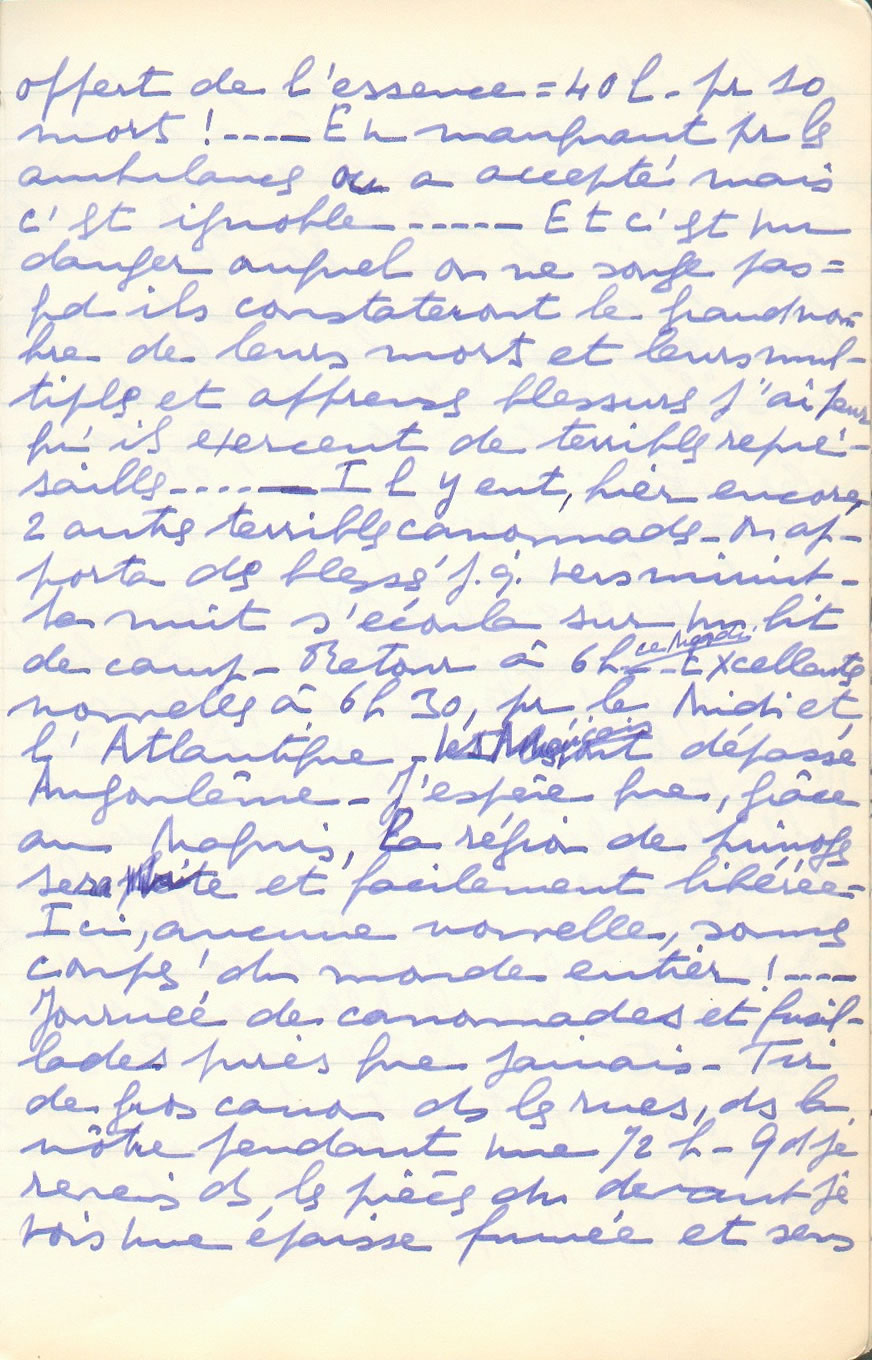 offert de l'essence = 40 l. pr 10
morts !---- En manquant pr les
ambulances on a accepté mais
c'est ignoble ----- Et c'est un
danger auquel on ne songe pas =
qd ils constateront le grand nom-
bre de leurs morts et leurs mul-
tiples et affreuses blessures j'ai peur
qu'ils exercent de terribles repré-
sailles ----- Il y eut, hier encore,
2 autres terribles canonnades - On ap-
porta des blessés j.q. vers minuit -
La nuit s'écoula sur un lit
de camp - Retour à 6h ce Mardi -- Excellentes
nouvelles à 6h30, pr le Midi et
l'Atlantique - les ont dépassé
Angoulême - J'espère que, grâce
au Maquis, la région de
sera vite et facilement libérée -
Ici, aucune nouvelle, sommes
coupés du monde entier !----
Journée de canonnades et fusil-
lades pires que jamais - Tir
de gros canon ds les rues, ds la
nôtre pendant une 1/2 h - Qd je
reviens ds les pièces du devant je
vois une épaisse fumée et sens